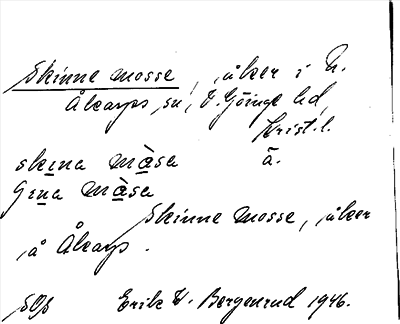 Skinne mosse, åker i N.
Åkarps sn, V. Göinge hd,
Krist. l.
skina mὰsa ä.
Gina mὰsa
Skinne mosse, åker
å Åkarp.
Erik W. Bergenrud 1946.